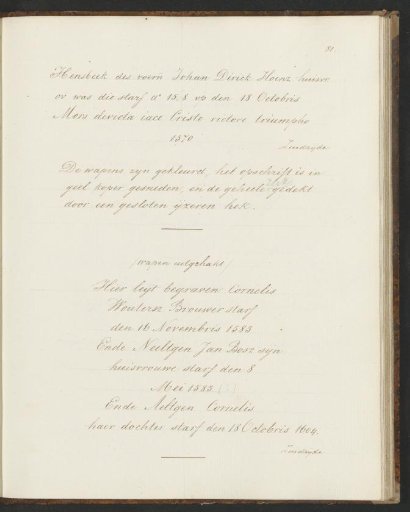 31
Hensbeek des voern Johan Dirick Hoenz huisvr
ov was die starf aº 15.8 vp den 18 Octobris
Mors devicta iace Cristo victore triumpho
1570
Zuidzyde
De wapens zyn gekleurd, het opschrift is in
geel koper gesneden, en de geheele gedekt
door een gesloten yzeren hek.
(wapen uitgehakt)
Hier leyt begraven Cornelis
Woutersz Brouwer starf
den 16 Novembris 1583
Ende Neeltgen Jan Besz syn
huisvrouwe starf den 8
Mei 1585
Ende Aeltgen Cornelis
haer dochter starf den 18 Octobris 1604.
Zuidzyde